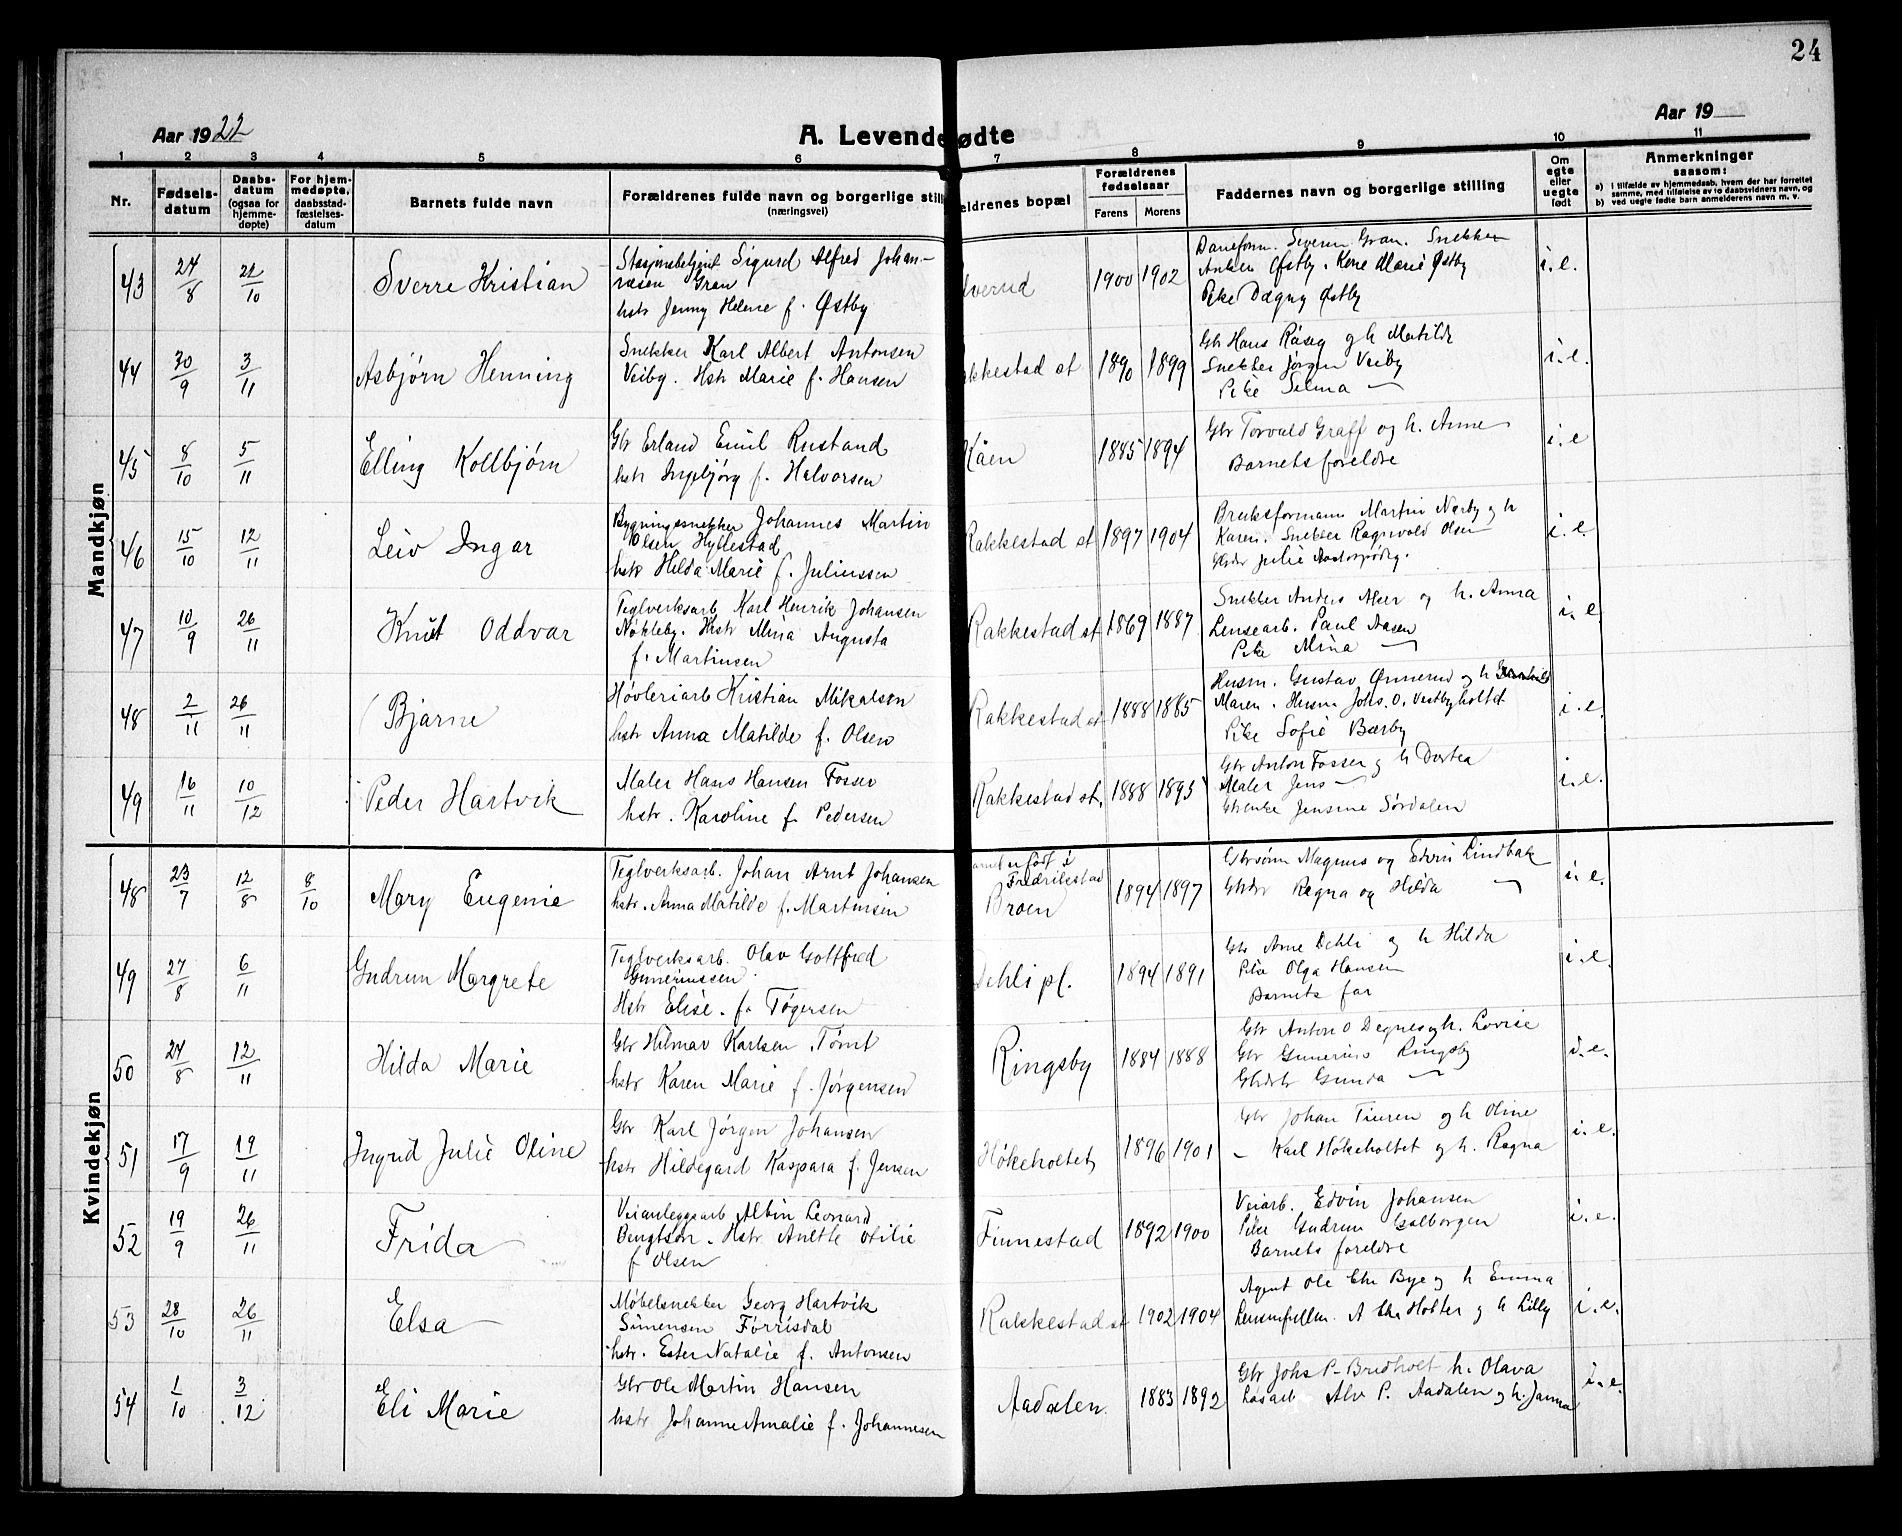 24
Aar 1922
Aar 19
A. Levendefødte
1 2 3 4 5 6 7 8 9 10 11
Nr.
Fødsels-
datum
Daabs-
datum
(ogsaa for
hjemme-
døpte)
For hjem-
medøpte,
daabsstad-
fæstelses-
datum
Barnets fulde navn
Forældrenes fulde navn og borgerlige still
(næringsvei)
ældrenes bopæl
Forældrenes
fødselsaar
Farens
Morens
Faddernes navn og borgerlige stilling
Om
egte
eller
uegte
født
Anmerkninger
saasom:
a) i tilfælde av hjemmedaab, hvem der har forrettet
samme, med tilføielse av to daabsvidners navn, og
b) ved uegte fødte barn anmelderens navn m. v.
Mandkjøn
43 24/8 22/10 Sverre Kristian
Stasjonsbetjent Sigurd Alfred Johan-
nesen Gran
hstr Jenny Helene f. Østby
lverud 1900 1902
Baneform. Severin Gran. Snekker
Anton Østby. Kone Marie Østby
Pike Dagny Østby
i. e.
44 30/9 3/11 Asbjørn Henning
Snekker Karl Albert Antonsen
Veiby. Hstr Marie f. Hansen
akkestad st 1890 1899
Gb Hans Raseg og h Matilde
Snekker Jørgen Veiby
Pike Selma —
i. e.
45 8/10 5/11 Elling Kollbjørn
Gbr Erland Emil Rustand
hstr Ingebjørg f. Halvorsen
Kåen 1885 1894
Gbr Torvald Graff og h. Anne
Barnets foreldre
i. e
46 15/10 12/11 Leiv Ingar
Bygningssnekker Johannes Martin
Olsen Hyllestad
hstr Hilda Marie f. Juliussen
Rakkestad st 1897 1904
Bruksformann Martin Nærby og h
Karen. Snekker Ragnvald Olsen
Gbdtr Julie
i. e.
47 10/9 26/11 Knut Oddvar
Teglverksarb. Karl Henrik Johansen
Nøkleby. Hstr Mina Augusta
f. Martinsen
Rakkestad st 1869 1887
Snekker Anders Moer og h. Anna
Lensearb. Paul Aasen
Pike Mina —
i. e
48 2/11 26/11 Bjarne
Høvleriarb Kristian Mikalsen
hstr Anna Matilde f. Olsen
Rakkestad st 1888 1885
Husm. Gustav Ønnerud og h
Maren. Husm Johs. O. Vestbyholtet
Pike Sofie Bærby
i. e.
49 16/11 10/12 Peder Hartvik
Maler Hans Hansen Fosser
hstr. Karoline f. Pedersen
Rakkestad st. 1888 1895
Gbr Anton Fosser og h Dortea
Maler Jens —
Gbenke Jensine Sørdalen
i. e.
Kvindekjøn
48 23/7 12/8 8/10 Mary Eugenie
Teglverksarb. Johan Arnt Johansen
hstr. Anna Matilde f. Martinsen
arnet er født i
Fredrikstad
Broen 1894 1897
Gbrsønn Magnus og Edvin Lindbak
Gbdtr Ragna og Hilda —
i. e.
49 27/8 6/11 Gudrun Margrete
Teglverksarb. Olav Gottfred
Gunerius­sen
Hstr Elise. f. Tøgersen
Dehli pl. 1894 1891
Gbr Arne Dehli og h Hilda
Pike Olga Hansen
Barnets far
i. e.
50 24/8 12/11 Hilda Marie
Gbr Hilmar Karlsen Tømt
hstr Karen Marie f. Jørgensen
Ringsby 1884 1888
Gbr Anton O Degnes og h. Lovise
Gbr Gunerius Ringsby
Gbdtr Gunda —
i. e.
51 17/9 19/11 Ingrid Julie Oline
Gbr Karl Jørgen Johansen
hstr Hildegard Kaspara f. Jensen
Høkeholtet 1896 1901
Gbr Johan Tiuren og h Oline
— Karl Høkeholtet og h. Ragna
i. e.
52 19/9 26/11 Frida
Veianleggsarb Albin Leonard
Bengtson. Hstr Anette Otilie
f Olsen
Finnestad 1892 1900
Veiarb. Edvin Johansen
Pike Gudrun Galborgen
Barnets foreldre
i. e.
53 28/10 26/11 Elsa
Møbelsnekker Georg Hartvik
Simensen Førrisdal
hstr. Ester Natalie f. Antonsen
Rakkestad st 1902 1904
Agent Ole Chr Bye og h Emma
Lensmfullm. A Chr Holter og h Lilly
i. e.
54 1/10 3/12 Eli Marie
Gbr Ole Martin Hansen
hstr Johanne Amalie f. Johannesen
Aadalen. 1883 1892
Gbr Johs P. Bredholt h. Olava
Løsarb Alv P. Aadalen og h. Janna
i. e.